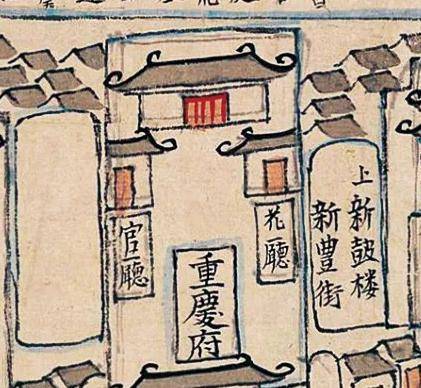 上新鼓楼
新豊街
花廳
重慶府
官廳